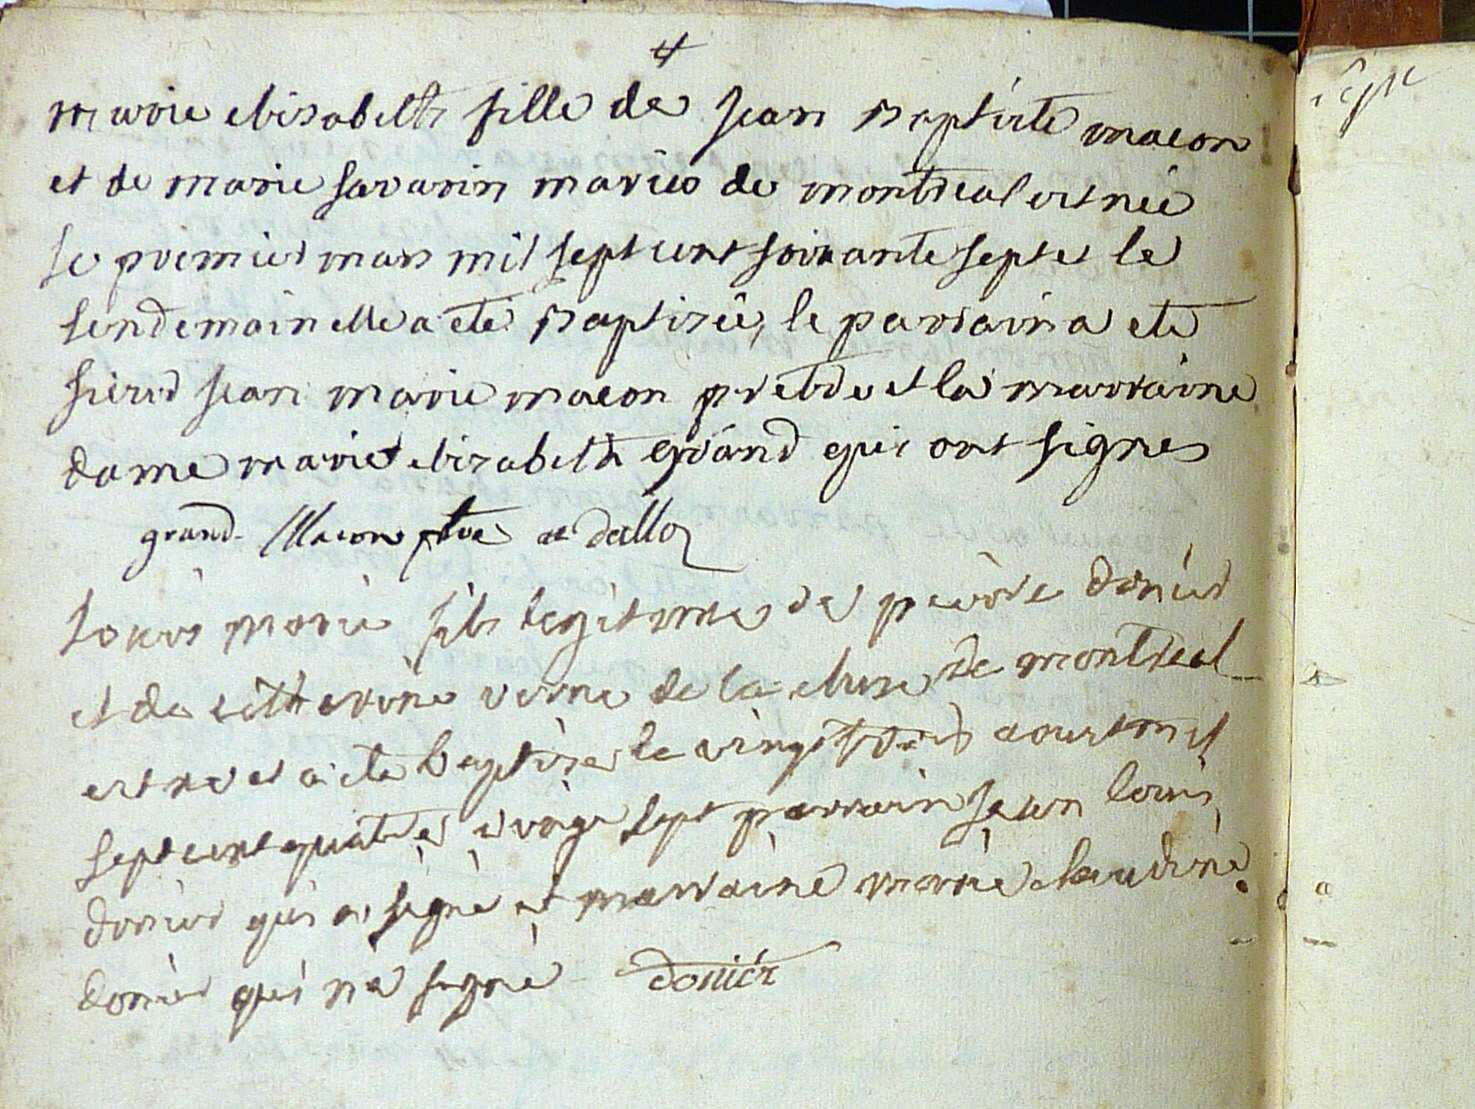 marie elisabeth fille de jean Baptiste macon
et de marie savarin mariés de montreal est née
le premier mars mil sept cent soixante sept et le
lendemain elle a été Baptisée, le parrain a ete
sieur jean marie macon pretre et la marraine
dame marie elisabeth grand qui ont signes
grand Macon ptre dalloz
louis marie fils legitime de pierre donier
et de catherine verne de la cluse de montreal
est ne et a ete baptise le vingt trois aoust mil
sept cent quatre vingt sept parrain jean louis
donier qui a signé et marraine marie claudine
donier qui na signé donier